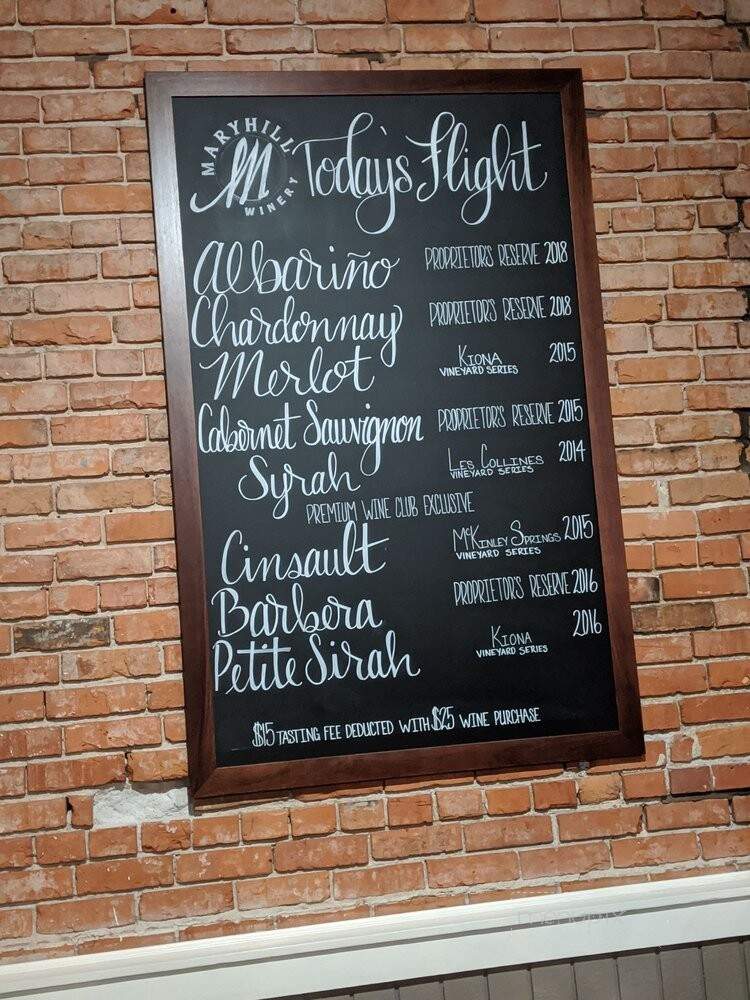 MARYHILL
M
WINERY
Today's Flight
Albariño PROPRIETOR'S RESERVE 2018
Chardonnay PROPRIETOR'S RESERVE 2018
Merlot KIONA 2015
VINEYARD SERIES
Cabernet Sauvignon PROPRIETOR'S RESERVE 2015
Syrah LES COLLINES 2014
VINEYARD SERIES
PREMIUM WINE CLUB EXCLUSIVE
Cinsault McKINLEY SPRINGS 2015
VINEYARD SERIES
Barbera PROPRIETOR'S RESERVE 2016
Petite Sirah KIONA 2016
VINEYARD SERIES
$15 TASTING FEE DEDUCTED WITH $25 WINE PURCHASE